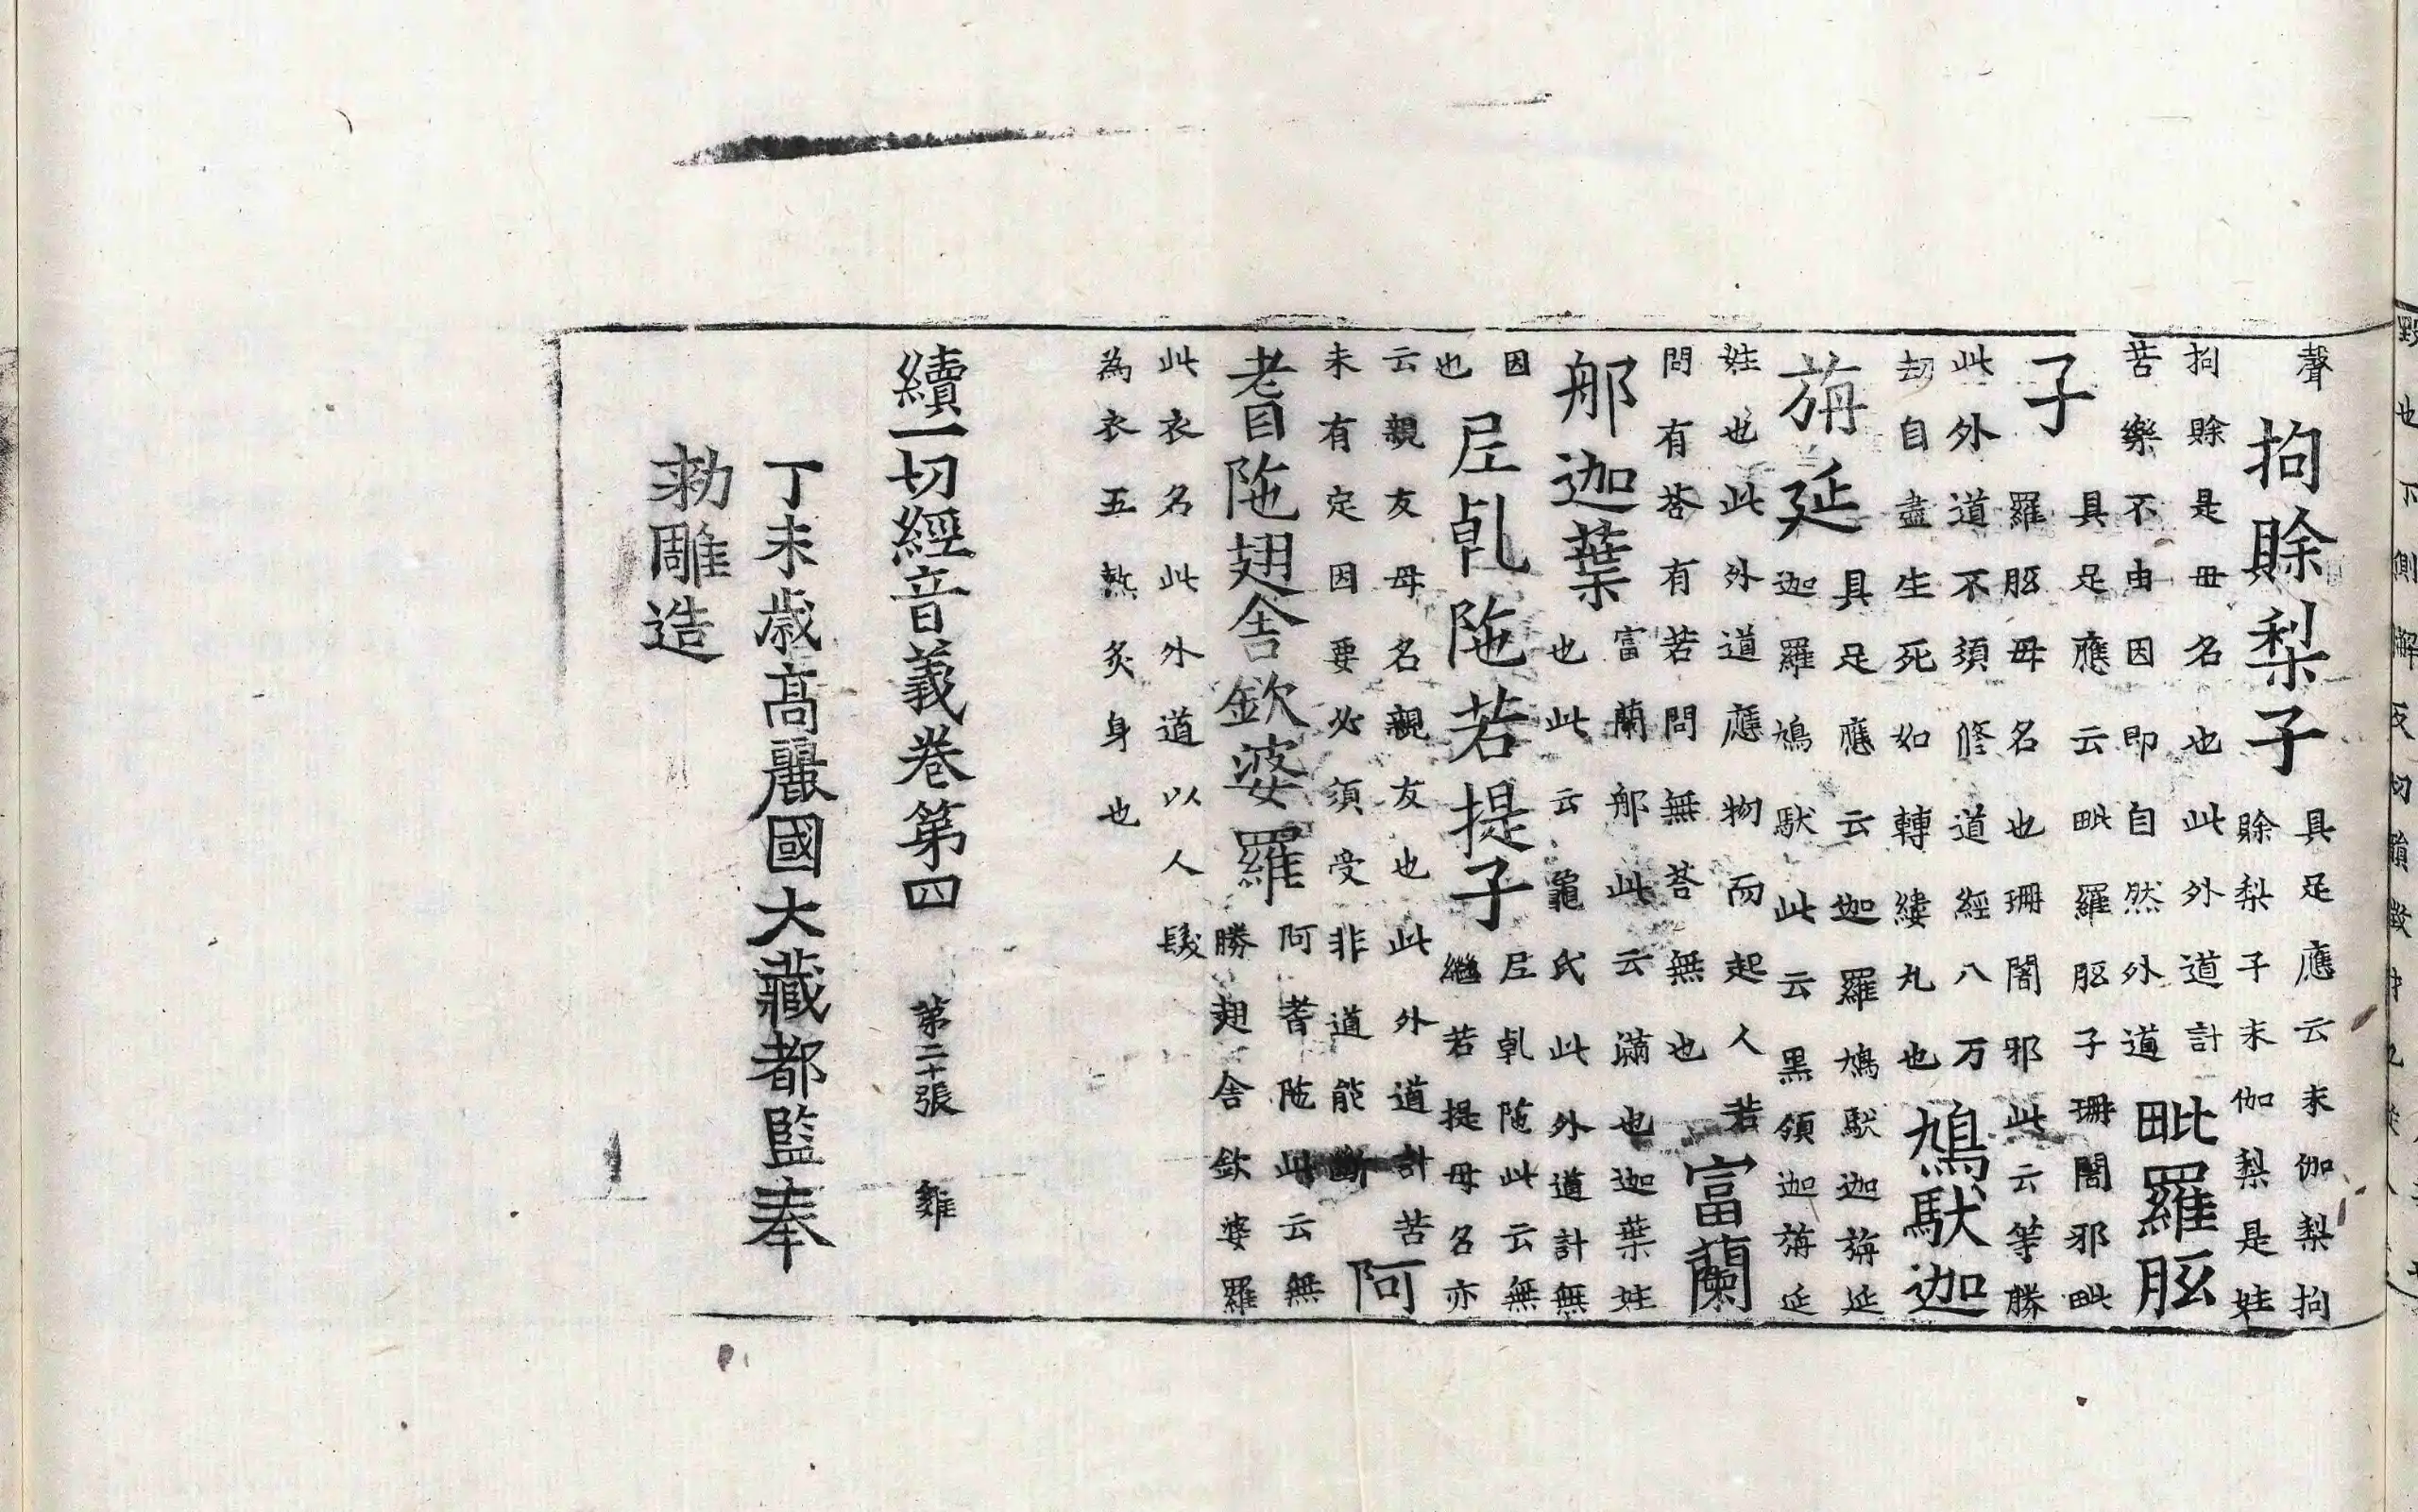 聲
拘賖梨子
具足應云末伽梨拘
賖梨子末伽梨是姓
拘賖是毋名也此外道計
苦樂不由因即自然外道
毗羅胝
子
具足應云毗羅胝子珊闍邪毗
羅胝毋名也珊闍邪此云等勝
此外道不須修道經八万
劫自盡生死如轉縷丸也
鳩馱迦
旃延
具足應云迦羅鳩馱迦旃延
迦羅鳩馱此云黑領迦旃延
姓也此外道應物而起人若
問有荅有若問無荅無也
富蘭
那迦葉
富蘭那此云滿也迦葉姓
也此云龜氏此外道計無
因
也
尼乹陁若提子
尼乹陁此云無
繼若提毋名亦
云親友毋名親友也此外道計苦
未有定因要必須受非道能斷
阿
耆陁翅舍欽婆羅
阿耆陁此云無
勝翅舍欽婆羅
此衣名此外道以人髮
為衣五熱炙身也
續一切經音義卷第四 第二十張 雞
丁未歲高麗國大藏都監奉
勑雕造